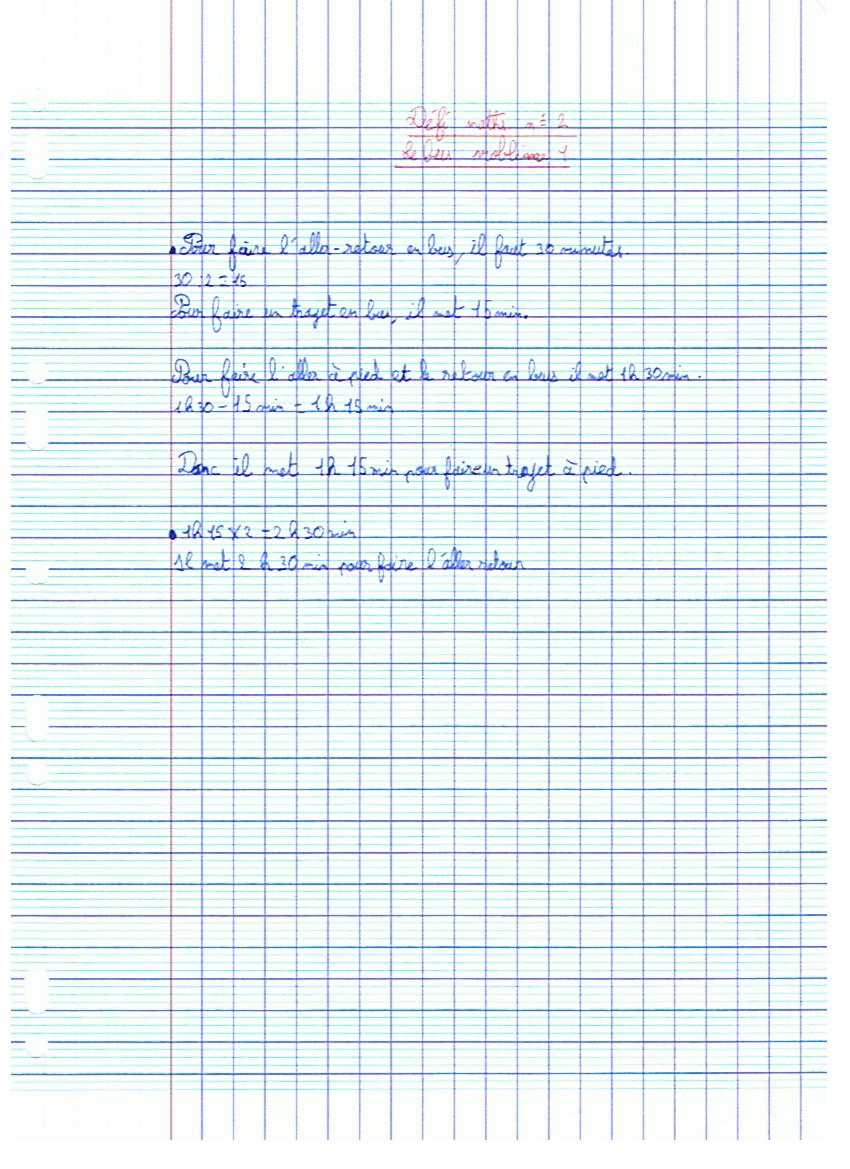 Défi maths n° 2
Le bus problème 1
• Pour faire l'aller-retour en bus, il faut 30 minutes.
30 : 2 = 15
Pour faire un trajet en bus, il met 15 min.
Pour faire l'aller à pied et le retour en bus il met 1h 30 min.
1h30 - 15 min = 1h 15 min
Donc il met 1h 15 min pour faire un trajet à pied.
• 1h 15 x 2 = 2 h 30 min
Il met 2 h 30 min pour faire l'aller retour